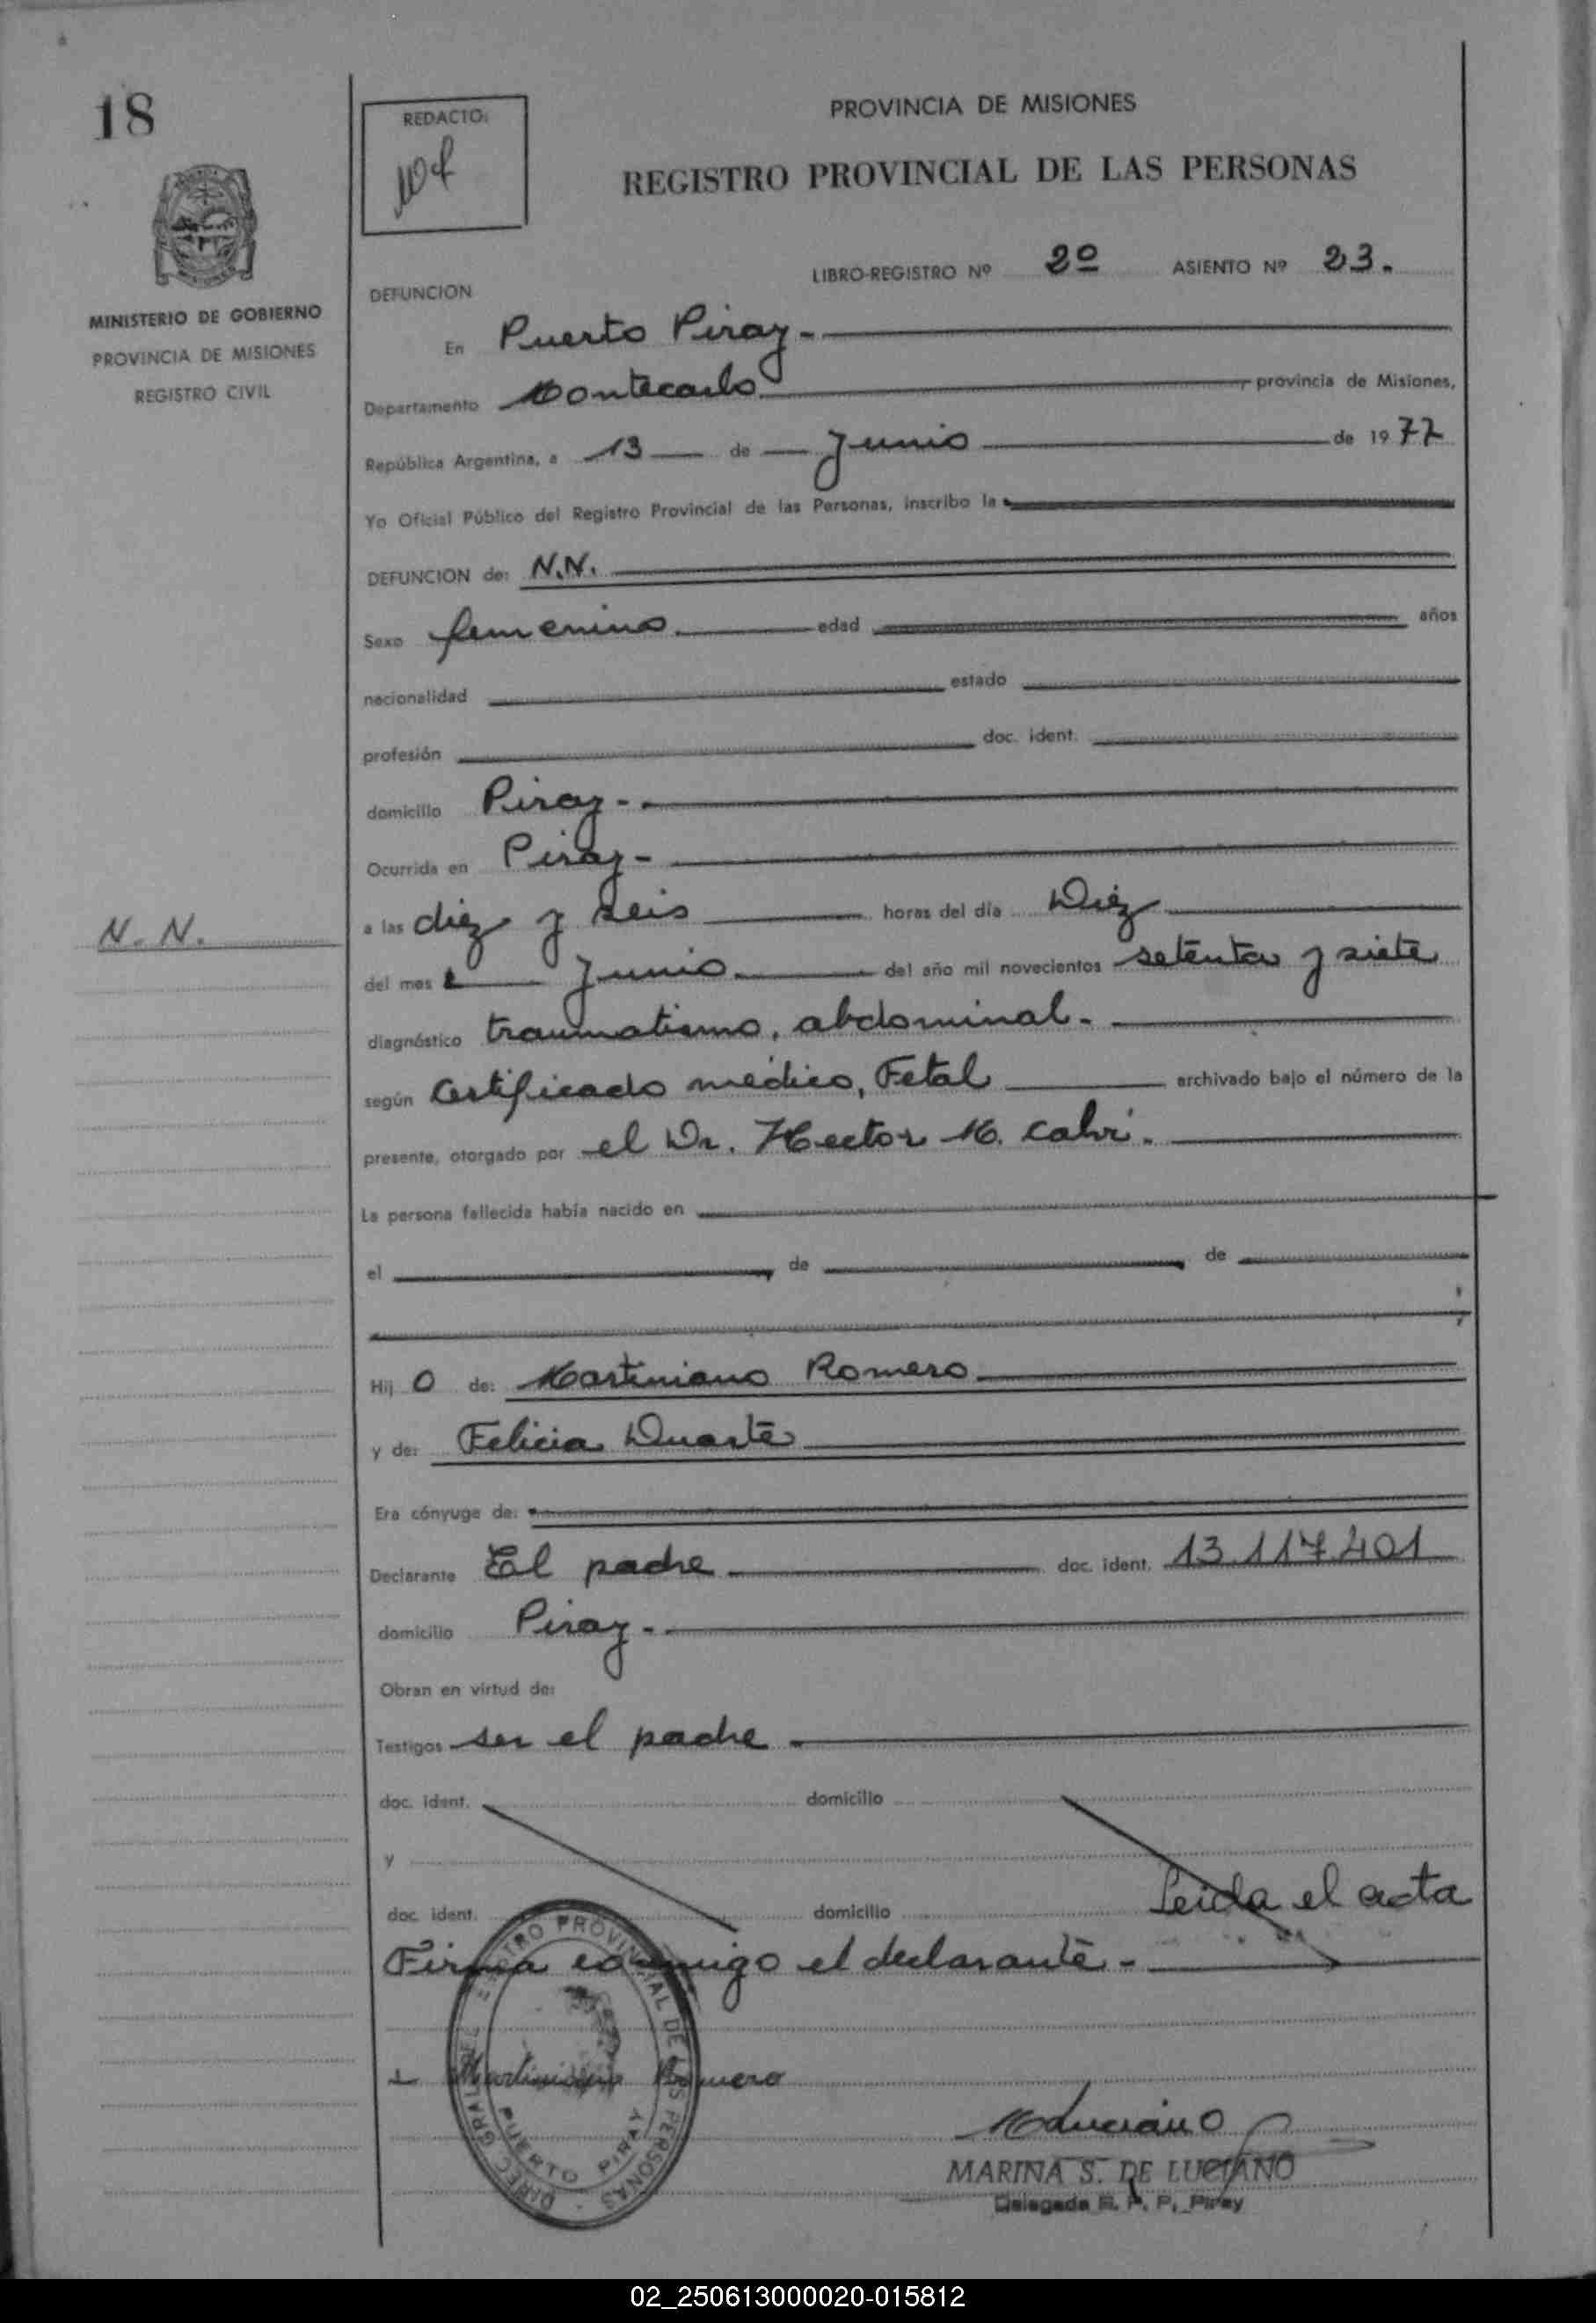 18
REDACTO:
PROVINCIA DE MISIONES
REGISTRO PROVINCIAL DE LAS PERSONAS
LIBRO-REGISTRO Nº 2º ASIENTO Nº 23.
MINISTERIO DE GOBIERNO
PROVINCIA DE MISIONES
REGISTRO CIVIL
DEFUNCION
En Puerto Piray.-
Departamento Montecarlo provincia de Misiones,
República Argentina, a 13 de Junio de 1977
Yo Oficial Público del Registro Provincial de las Personas, inscribo la
DEFUNCION de: N.N.
Sexo femenino. edad años
nacionalidad estado
profesión doc. ident.
domicilio Piray-.
Ocurrida en Piray-
N. N.
a las diez y seis horas del día Diez
del mes Junio. del año mil novecientos setenta y siete
diagnóstico traumatismo, abdominal.
según Certificado médico, Fetal archivado bajo el número de la
presente, otorgado por el Dr. Hector M.
La persona fallecida había nacido en
el de de
Hij o de: Martiniano Romero
y de: Felicia Duarte
Era cónyuge de:
Declarante El padre doc. ident. 13.117.401
domicilio Piray-.
Obran en virtud de:
Testigos ser el padre
doc. ident. domicilio
y
doc. ident. domicilio Leida el acta
Firma conmigo el declarante.-
Martiniano Romero
PUERTO PIRAY
MARINA S. DE LUCIANO
Delegada R. P. P. Piray
02_250613000020-015812